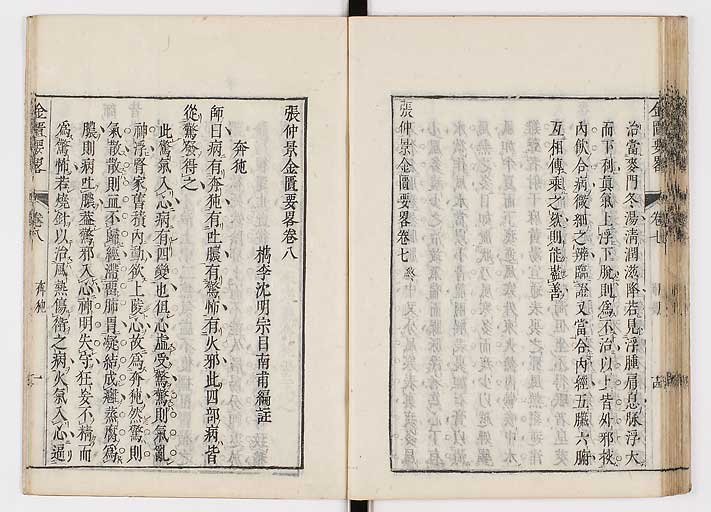 治當麥門冬湯清潤滋降若見浮腫肩息脉浮大
而下利眞氣上浮下脫則爲不治以上皆外邪挾
内飲合病微細之辨臨證又當合内經五臟六腑
互相傳乘之欬則能盡善
張仲景金匱要畧卷七
金匱要畧
卷七
張仲景金匱要畧卷八
檇李沈明宗目南甫編註
奔㹠
師曰病有奔㹠有吐膿有驚怖有火邪此四部病皆
從驚發得之
此驚氣入心病有四變也徂心虛受驚驚則氣亂
神浮腎家舊積内動欲上陵心故爲奔㹠然驚則
氣散散則血不歸經滯畱肺胃凝結成癰蒸腐爲
膿則病吐膿葢驚邪入心神明失守狂妄不精而
爲驚怖若燒針以治風熱傷衛之病火氣入心逼
金匱要畧
卷八
奔㹠
一